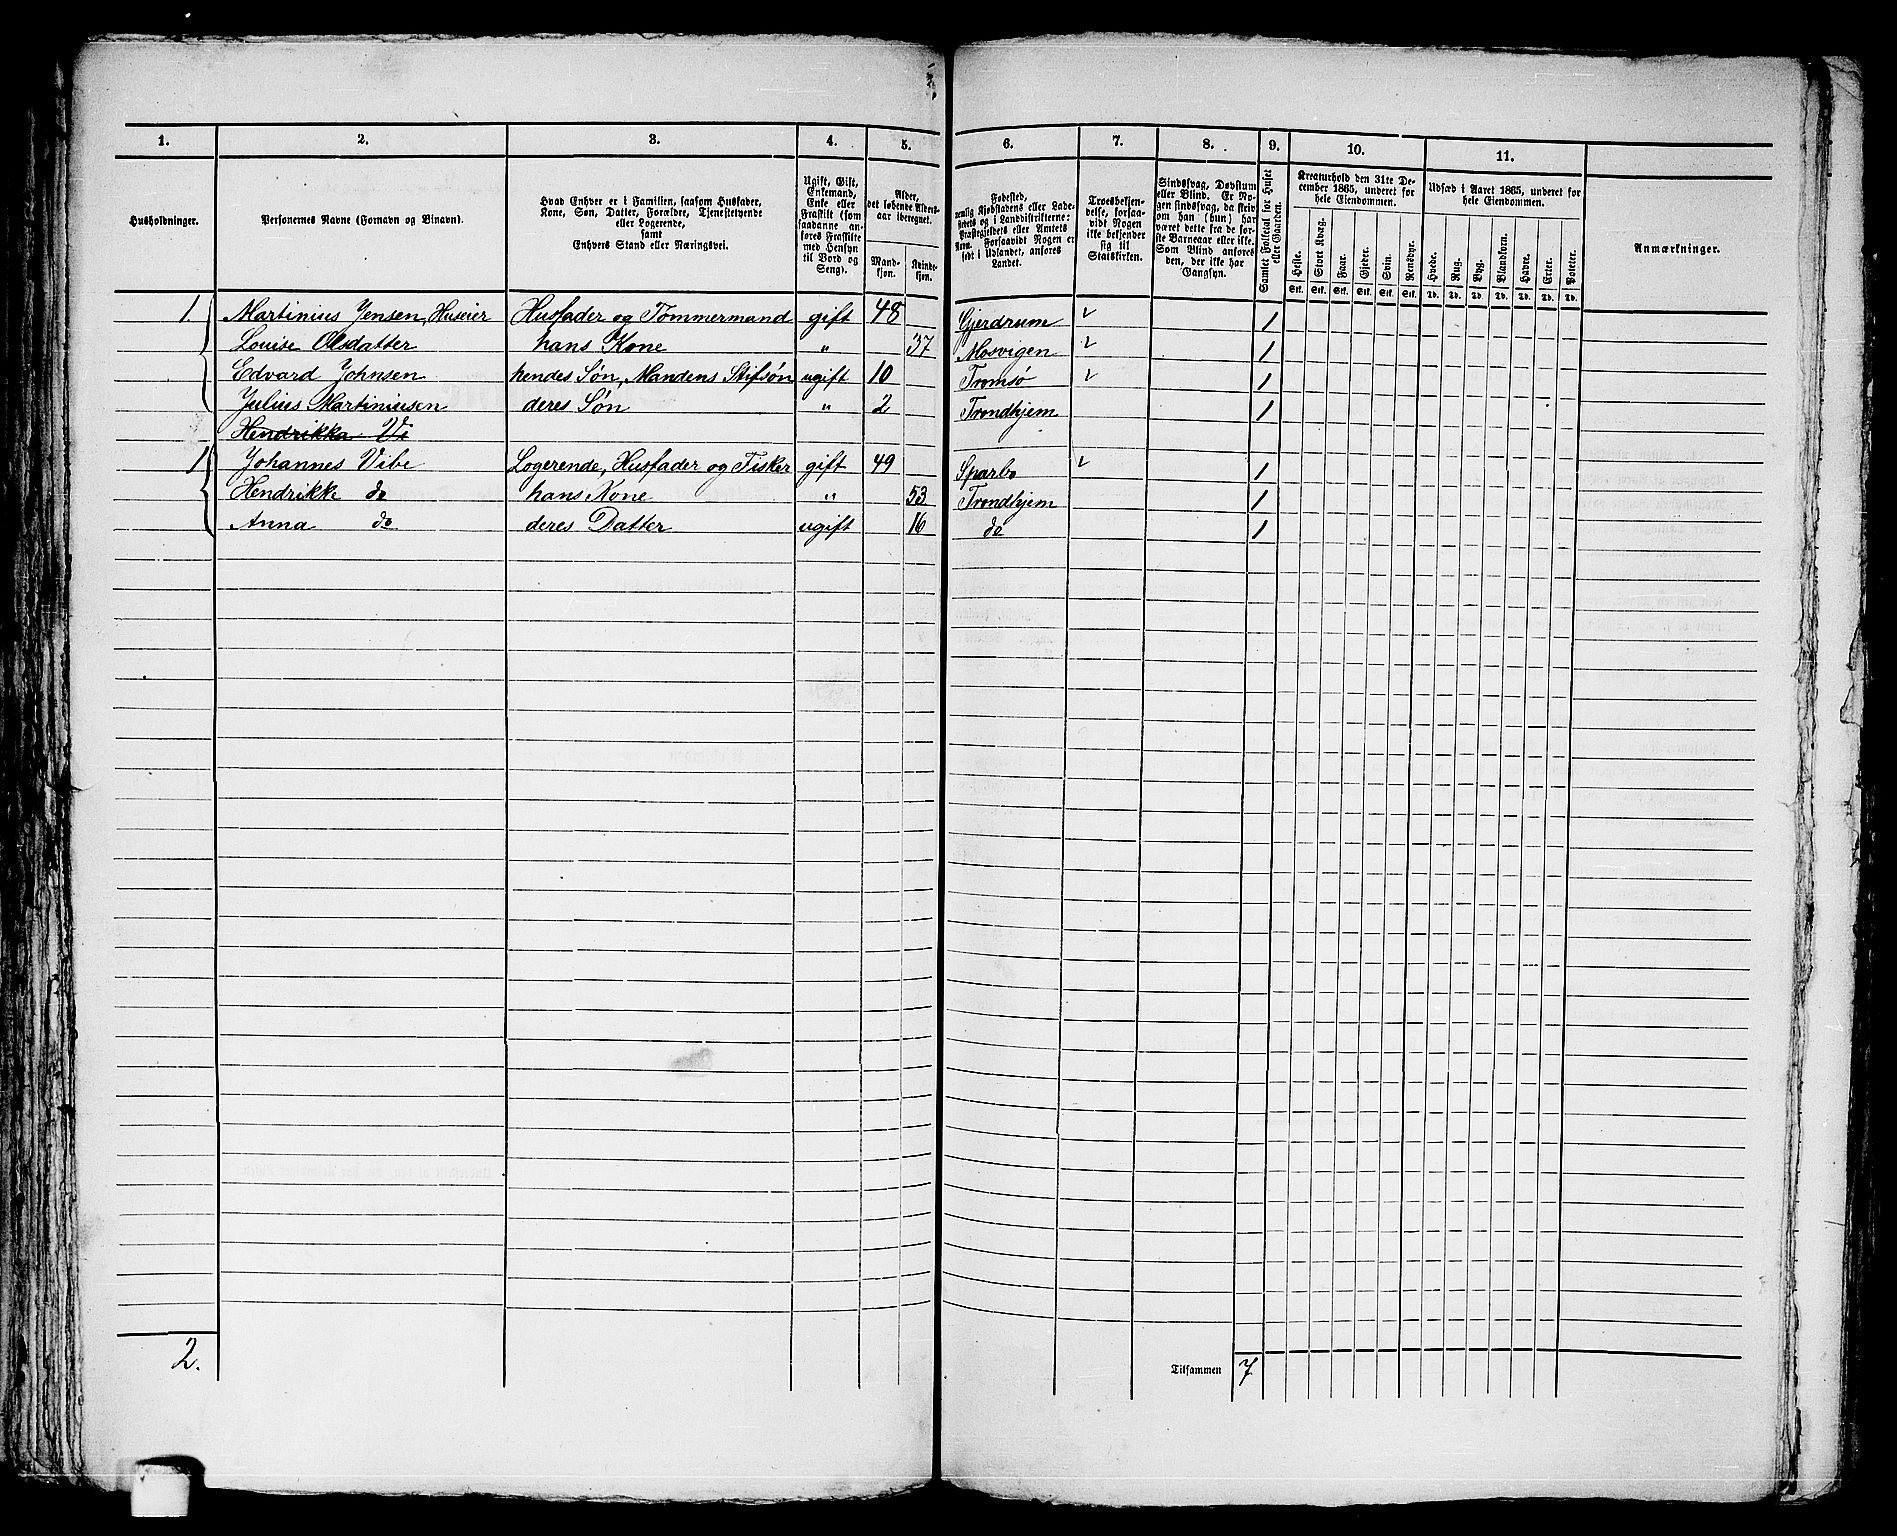 1. 2. 3. 4. 5. 6. 7. 8. 9. 10. 11.
Husholdninger.
Personernes Navne (Fornavn og Binavn).
Hvad Enhver er i Familien, saasom Husfader,
Kone, Søn, Datter, Forældre, Tjenestetyende
eller Logerende,
samt
Enhvers Stand eller Næringsvei.
Ugift, Gift,
Enkemand,
Enke eller
Fraskilt (som
saadanne an-
føres Fraskilte
med Hensyn
til Bord og
Seng).
Alder,
det løbende Alders-
aar iberegnet.
Mand-
kjøn.
Kvinde-
kjøn.
Fødested,
nemlig Kjøbstadens eller Lade-
stedets og i Landdistrikterne:
Præstegjeldets eller Amtets
Navn. Forsaavidt Nogen er
født i Udlandet, anføres
Landet.
Troesbekjen-
delse, forsaa-
vidt Nogen
ikke bekjender
sig til
Statskirken.
Sindssvag, Døvstum
eller Blind. Er No-
gen sindssvag, da skriv
om han (hun) har
været dette fra de før-
ste Barneaar eller ikke.
Som Blind anføres
den, der ikke har
Gangsyn.
Samlet Folketal for Huset
eller Gaarden.
Kreaturhold den 31te De-
cember 1865, underet for
hele Eiendommen.
Heste. Stort Kvæg. Faar. Gjeder. Svin. Rensdyr.
Stk. Stk. Stk. Stk. Stk. Stk.
Udsæd i Aaret 1865, underet for
hele Eiendommen.
Hvede. Rug. Byg. Blandkorn. Havre. Erter. Poteter.
Td. Td. Td. Td. Td. Td. Td.
Anmærkninger.
1. Martinius Jensen, Huseier Husfader og Tømmermand gift 48 Gjerdrum 1
Louise Olsdatter hans Kone " 37 Mosvigen 1
Edvard Johnsen hendes Søn, Mandens Stifsøn ugift 10 Tromsø 1
Julius Martiniusen deres Søn " 2 Trondhjem 1
Hendrikka Vi
1 Johannes Vibe Logerende, Husfader og Fisker gift 49 Sparbo 1
Hendrikke do hans Kone " 53 Trondhjem 1
Anna do deres Datter ugift 16 do 1
2.
Tilsammen 7